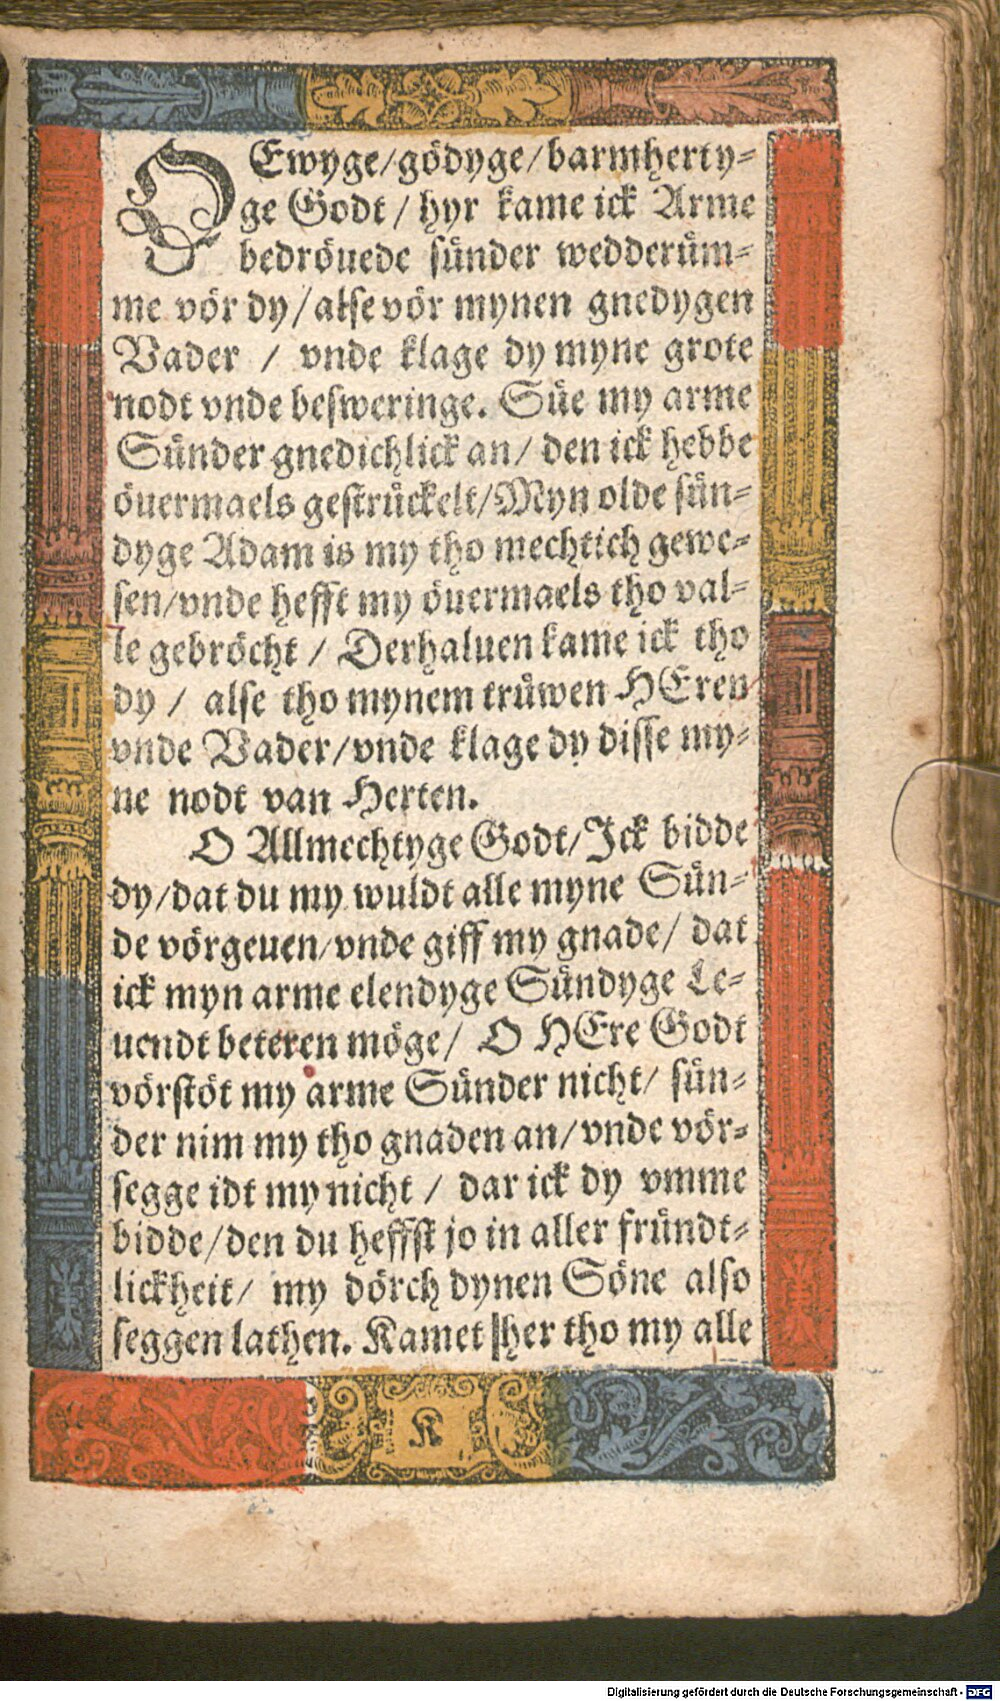 O Ewyge/gödyge/barmherty=
ge Godt / hyr kame ick Arme
bedröuede sünder wedderüm=
me vör dy/alse vör mynen gnedygen
Vader / vnde klage dy myne grote
nodt vnde besweringe. Süe my arme
Sünder gnedichlick an/ den ick hebbe
öuermaels gestrückelt/Myn olde sün=
dyge Adam is my tho mechtich gewe=
sen/vnde hefft my öuermaels tho val=
le gebröcht / Derhaluen kame ick tho
dy / alse tho mynem trüwen HEren
vnde Vader/vnde klage dy disse my=
ne nodt van Herten.
O Allmechtyge Godt/Ick bidde
dy/dat du my wuldt alle myne Sün=
de vörgeuen/vnde giff my gnade/ dat
ick myn arme elendyge Sündyge Le=
uendt beteren möge/ O HEre Godt
vörstöt my arme Sünder nicht/ sün=
der nim my tho gnaden an/vnde vör=
segge idt my nicht / dar ick dy vmme
bidde/den du heffst jo in aller fründt=
lickheit/ my dörch dynen Söne also
seggen lathen. Kamet her tho my alle
K
Digitalisierung gefördert durch die Deutsche Forschungsgemeinschaft - DFG